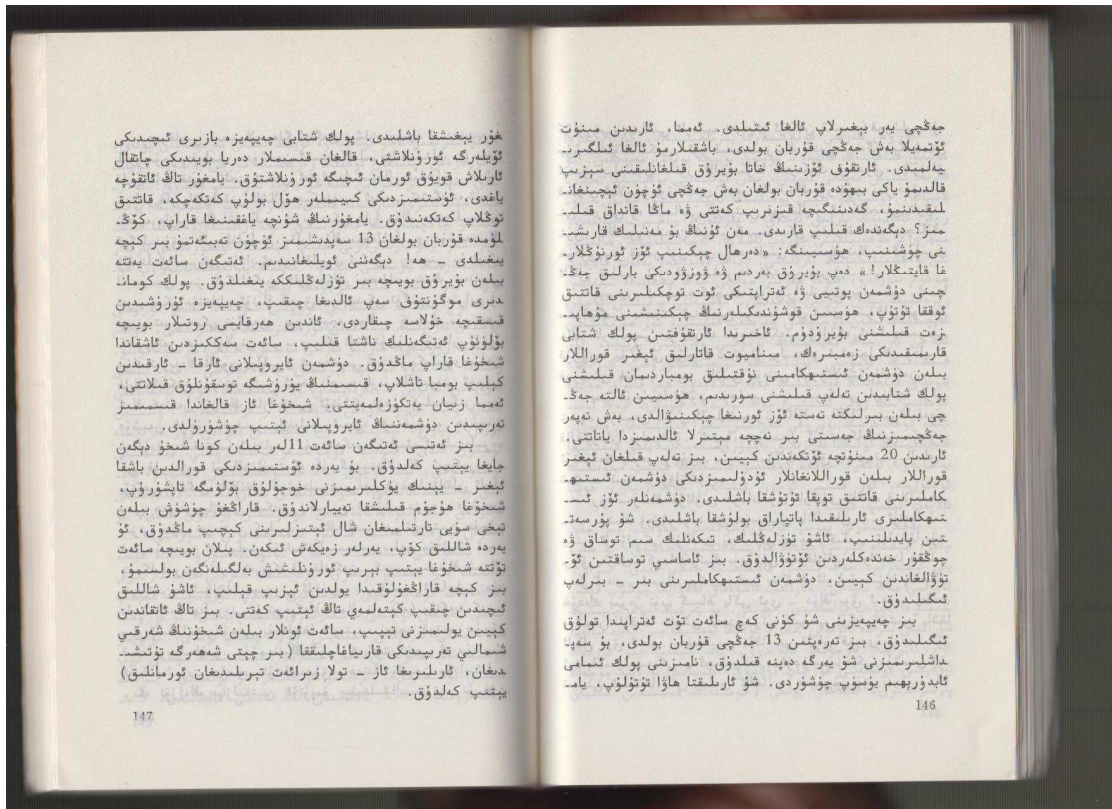 جەڭچى يەر بېغىرلاپ ئالغا ئىتىلدى. ئەمما، ئارىدىن مىنۇت
ئۆتمەيلا بەش جەڭچى قۇربان بولدى، باشقىلارمۇ ئالغا ئىلگىرى‍ـ
يەلمىدى. ئارتقۇف ئۆزىنىڭ خاتا بۇيرۇق قىلغانلىقىنى سېزىپ
قالدىمۇ ياكى بىھۇدە قۇربان بولغان بەش جەڭچى ئۈچۈن ئېچىنغانـ
لىقىدىنمۇ، گەدىنىگىچە قىزىرىپ كەتتى ۋە ماڭا قانداق قىلىـ
مىز؟ دېگەندەك قىلىپ قارىدى. مەن ئۇنىڭ بۇ مەنىلىك قارىشىـ
نى چۈشىنىپ، ھۈسىيىنگە: «دەرھال چېكىنىپ ئۆز ئورنۇڭلارـ
غا قايتىڭلار!» دەپ بۇيرۇق بەردىم ۋە ۋوزۋودىكى بارلىق جەڭـ
چىنى دۈشمەن پوتىيى ۋە ئەتراپتىكى ئوت توچكىلىرىنى قاتتىق
ئوققا تۇتۇپ، ھۈسىين قوشۇندىكىلەرنىڭ چېكىنىشىنى مۇھاپىـ
زەت قىلىشنى بۇيرۇدۇم. ئاخىرىدا ئارتقۇفتىن پولك شتابى
قارىمىقىدىكى زەمبىرەك، مىناميوت قاتارلىق ئېغىر قوراللار
بىلەن دۈشمەن ئىستىھكامىنى نۇقتىلىق بومباردىمان قىلىشنى
پولك شتابىدىن تەلەپ قىلىشنى سورىدىم، ھۈسىيىن ئالتە جەڭـ
چى بىلەن بىرلىكتە تەستە ئۆز ئورنىغا چېكىنىۋالدى، بەش نەپەر
جەڭچىمىزنىڭ جەسىتى بىر نەچچە مېتىرلا ئالدىمىزدا ياتاتتى.
ئارىدىن 20 مىنۇتچە ئۆتكەندىن كېيىن، بىز تەلەپ قىلغان ئېغىر
قوراللار بىلەن قوراللانغانلار ئۇدۇلىمىزدىكى دۈشمەن ئىستىھـ
كاملىرىنى قاتتىق توپقا تۇتۇشقا باشلىدى. دۈشمەنلەر ئۆز ئىســ
تىھكاملىرى ئارىلىقىدا پاتپاراق بولۇشقا باشلىدى. شۇ پۇرسەتـ
تىن پايدىلىنىپ، ئاشۇ تۈزلەڭلىك، تىكەنلىك سىم توساق ۋە
چوڭقۇر خەندەكلەردىن ئۆتۈۋالدۇق. بىز ئاساسىي توساقتىن ئۆـ
تۈۋالغاندىن كېيىن، دۈشمەن ئىستىھكاملىرىنى بىر - بىرلەپ
ئىگىلىدۇق.
بىز چەيپەيزىنى شۇ كۈنى كەچ سائەت تۆت ئەتراپىدا تولۇق
ئىگىلىدۇق، بىز تەرەپتىن 13 جەڭچى قۇربان بولدى، بۇ سەپـ
داشلىرىمىزنى شۇ يەرگە دەپنە قىلدۇق، نامىزىنى پولك ئىمامى
ئابدۇرېھىم يۈسۈپ چۈشۈردى. شۇ ئارىلىقتا ھاۋا تۇتۇلۇپ، يامـ
146
غۇر يېغىشقا باشلىدى. پولك شتابى چەيپەيزە بازىرى ئىچىدىكى
ئۆيلەرگە ئورۇنلاشتى، قالغان قىسىملار دەريا بويىدىكى چاتقال
ئارىلاش قويۇق ئورمان ئىچىگە ئورۇنلاشتۇق. يامغۇر تاڭ ئاتقۇچە
ياغدى، ئۈستىمىزدىكى كىيىملەر ھۆل بولۇپ كەتكەچكە، قاتتىق
توڭلاپ كەتكەنىدۇق. يامغۇرنىڭ شۇنچە ياققىنىغا قاراپ، كۆڭـ
لۈمدە قۇربان بولغان 13 سەپدىشىمىز ئۈچۈن تەبىئەتمۇ بىر كېچە
يىغىلدى - ھە! دېگەننى ئويلىغانىدىم. ئەتىگەن سائەت يەتتە
بىلەن بۇيرۇق بويىچە بىر تۈزلەڭلىككە يىغىلدۇق. پولك كومانـ
دىرى موگۇتنۇق سەپ ئالدىغا چىقىپ، چەيپەيزە ئۇرۇشىدىن
قىسقىچە خۇلاسە چىقاردى، ئاندىن ھەرقايسى روتىلار بويىچە
بۆلۈنۈپ ئەتىگەنلىك ناشتا قىلىپ، سائەت سەككىزدىن ئاشقاندا
شىخۇغا قاراپ ماڭدۇق. دۈشمەن ئايروپىلانى ئارقا - ئارقىدىن
كېلىپ بومبا تاشلاپ، قىسىمنىڭ يۈرۈشىگە توسقۇنلۇق قىلاتتى،
ئەمما زىيان يەتكۈزەلمەيتتى. شىخۇغا ئاز قالغاندا قىسمىمىز
تەرىپىدىن دۈشمەننىڭ ئايروپىلانى ئېتىپ چۈشۈرۈلدى.
بىز ئەتىسى ئەتىگەن سائەت 11لەر بىلەن كونا شىخۇ دېگەن
جايغا يېتىپ كەلدۇق. بۇ يەردە ئۈستىمىزدىكى قورالدىن باشقا
ئېغىر - يېنىك يۈكلىرىمىزنى خوجۇلۇق بۆلۈمگە تاپشۇرۇپ،
شىخۇغا ھۇجۇم قىلىشقا تەييارلاندۇق. قاراڭغۇ چۈشۈش بىلەن
تېخى سۈيى تارتىلمىغان شال ئېتىزلىرىنى كېچىپ ماڭدۇق، ئۇ
يەردە شاللىق كۆپ، يەرلەر زەيكەش ئىكەن. پىلان بويىچە سائەت
تۆتتە شىخۇغا يېتىپ بېرىپ ئورۇنلىشىش بەلگىلەنگەن بولسىمۇ،
بىز كېچە قاراڭغۇلۇقىدا يولدىن ئېزىپ قېلىپ، ئاشۇ شاللىق
ئىچىدىن چىقىپ كېتەلمەي تاڭ ئېتىپ كەتتى. بىز تاڭ ئاتقاندىن
كېيىن يولىمىزنى تېپىپ، سائەت ئونلار بىلەن شىخۇنىڭ شەرقىي
شىمالىي تەرىپىدىكى قارىياغاچلىققا (بىر چېتى شەھەرگە تۇتىشىـ
دىغان، ئارىلىرىغا ئاز - تولا زىرائەت تېرىلىدىغان ئورمانلىق)
يېتىپ كەلدۇق.
147